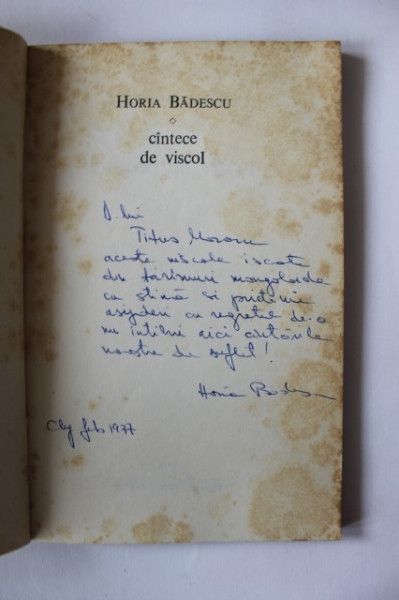 HORIA BĂDESCU
cîntece
de viscol
D-lui
Titus
aceste viscole iscate
din tărîmuri mongoloide
cu stimă și prietenie
cu regretul de-a
nu întîlni aici cîntările
noastre de suflet!
Horia Bădescu
Cluj feb 1977